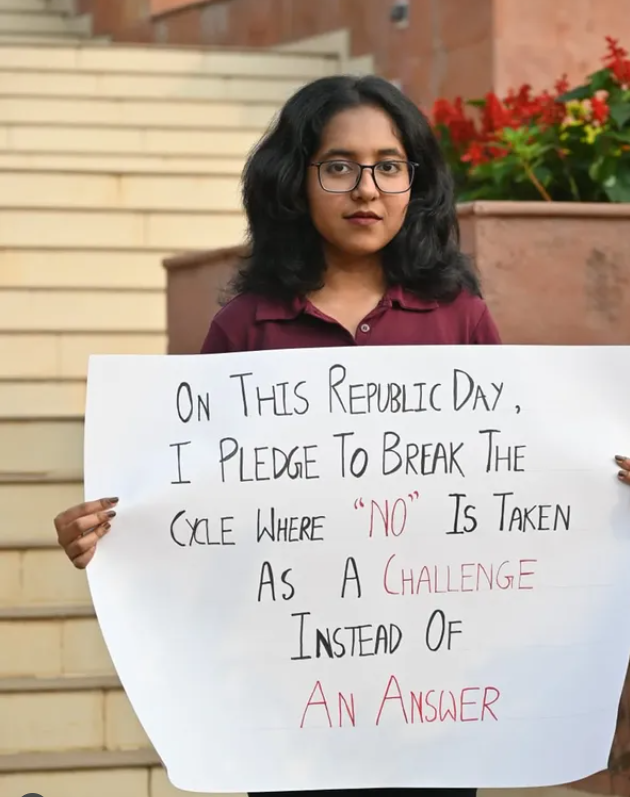 On This Republic Day,
I Pledge To Break The
Cycle Where "NO" Is Taken
As A Challenge
Instead Of
An Answer